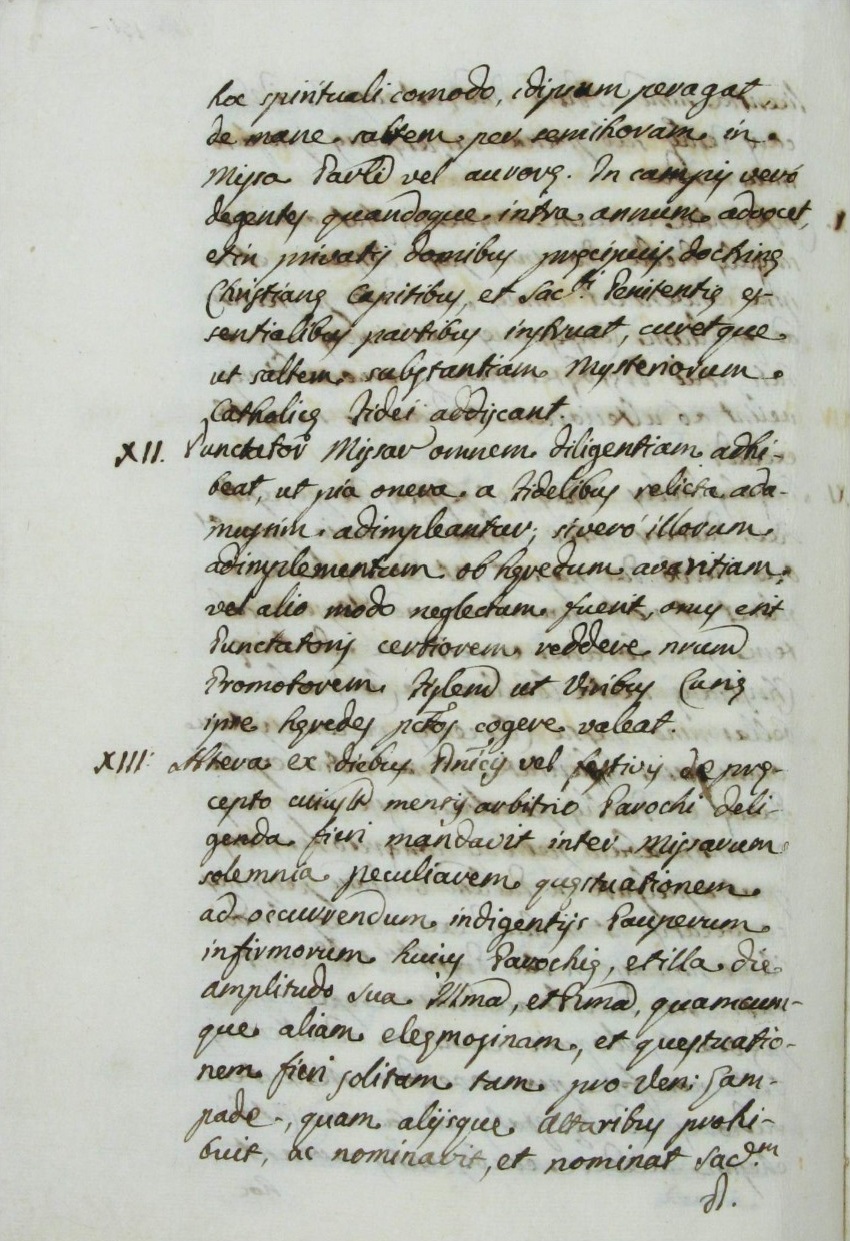 hoc spirituali comodo, idipsum peragat
de mane saltem per semihoram in
Missa Paroli vel auroræ. In campis verò
degentes quandoque intra annum advocet,
et in privatis domibus præcipuis doctrinæ
Christianæ Capitibus, et Sac.ti Penitentiæ es-
sentialibus partibus instruat, curetque
ut saltem substantiam Mysteriorum
Catholicæ Fidei addiscant.
XII. Punctator Missar omnem diligentiam adhi-
beat, ut pia onera a Fidelibus relicta ada-
mussim adimpleantur; si verò illorum
adimplementum ob hæredum avaritiam,
vel alio modo neglectum fuerit, onus erit
Punctatoris certiorem reddere nrum
Promotorem Fiscalem ut viribus Curiæ
ipse hæredes pctos cogere valeat.
XIII. Altera ex diebus Dnicis vel festivis de præ-
cepto cuiuslt mensis arbitrio Parochi deli-
genda fieri mandavit inter Missarum
solemnia peculiarem quæstuationem
ad occurrendum indigentijs Pauperum
infirmorum huius Parochiæ, et illa die
amplitudo sua Illma, et Rma, quamcum-
que aliam eleæmosinam, et questuatio-
nem fieri solitam tam pro Ven: Lam-
pade, quam alijsque Altaribus prohi-
buit, ac nominavit, et nominat Sacd.m
D.